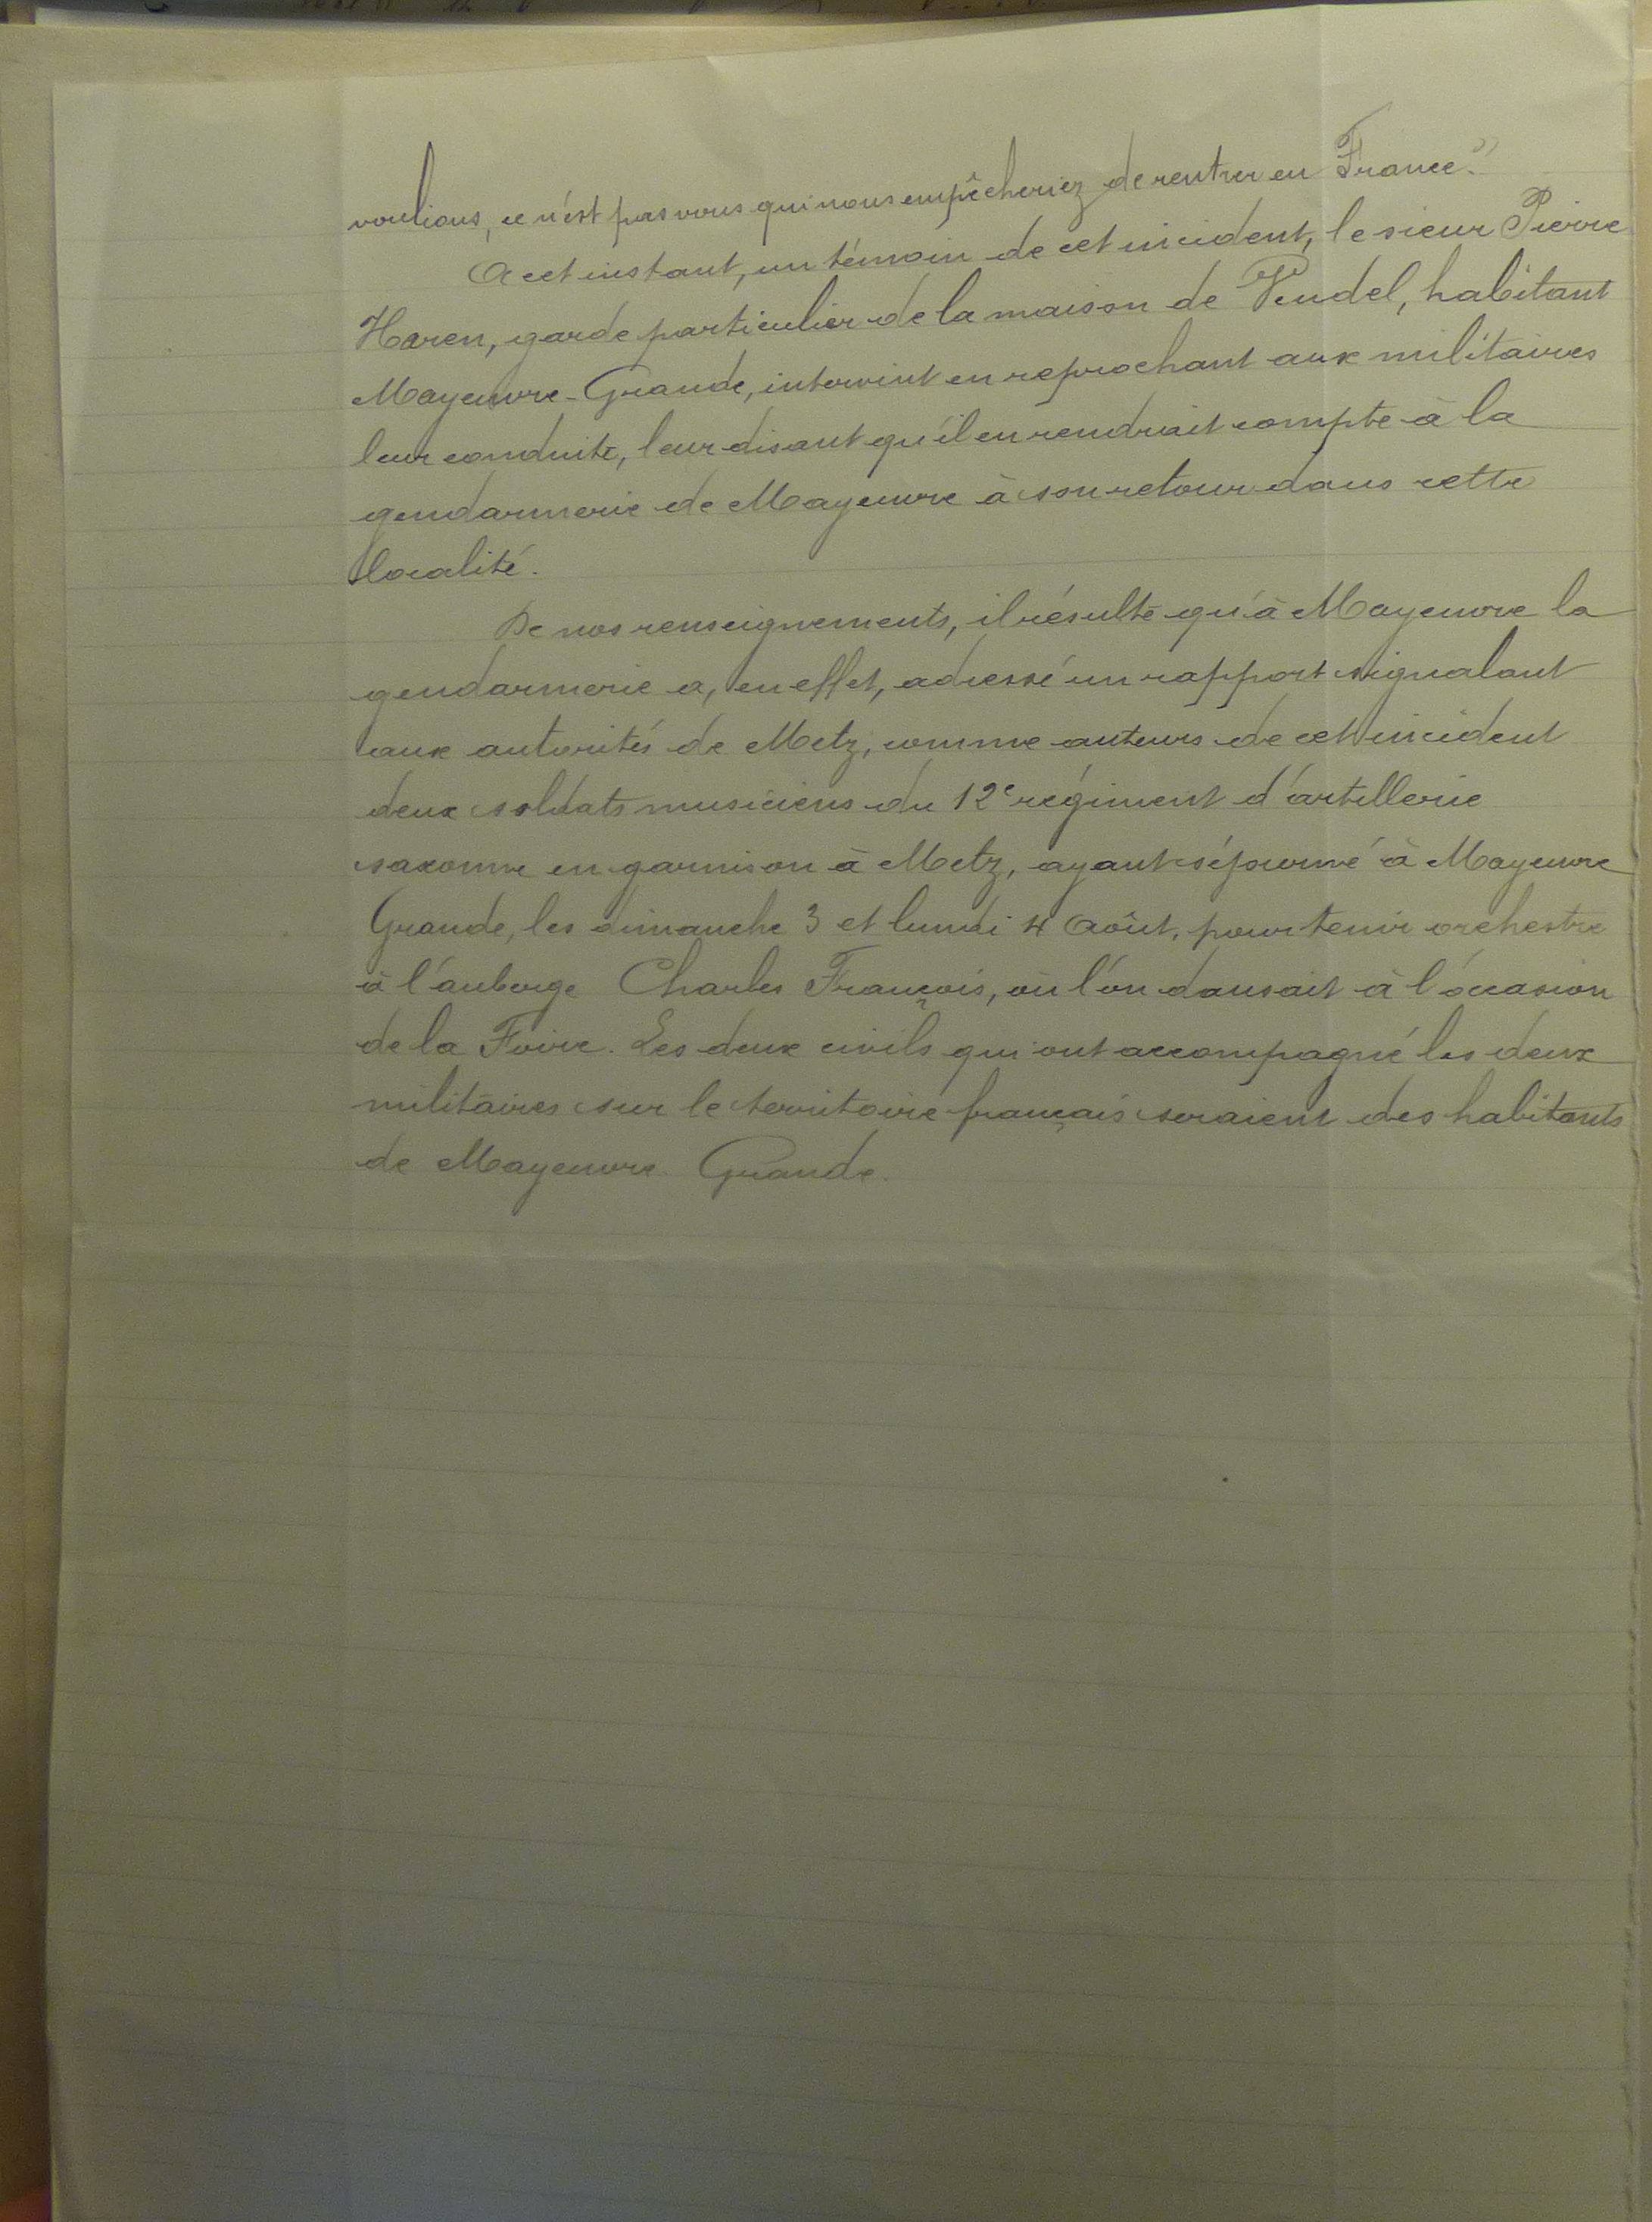 voulions, ce n'est pas vous qui nous empêcheriez de rentrer en France."
A cet instant, un témoin de cet incident, le sieur Pierre
Haren, garde particulier de la maison de Vendel, habitant
Moyeuvre-Grande, intervint en reprochant aux militaires
leur conduite, leur disant qu'il en rendrait compte à la
gendarmerie de Moyeuvre à son retour dans cette
localité.
De nos renseignements, il résulte qu'à Moyeuvre la
gendarmerie a, en effet, adressé un rapport signalant
aux autorités de Metz, comme auteurs de cet incident
deux soldats musiciens du 12e régiment d'artillerie
saxonne en garnison à Metz, ayant séjourné à Moyeuvre
Grande, les dimanche 3 et lundi 4 Août, pour tenir orchestre
à l'auberge Charles François, où l'on dansait à l'occasion
de la Foire. Les deux civils qui ont accompagné les deux
militaires sur le territoire français seraient des habitants
de Moyeuvre Grande.